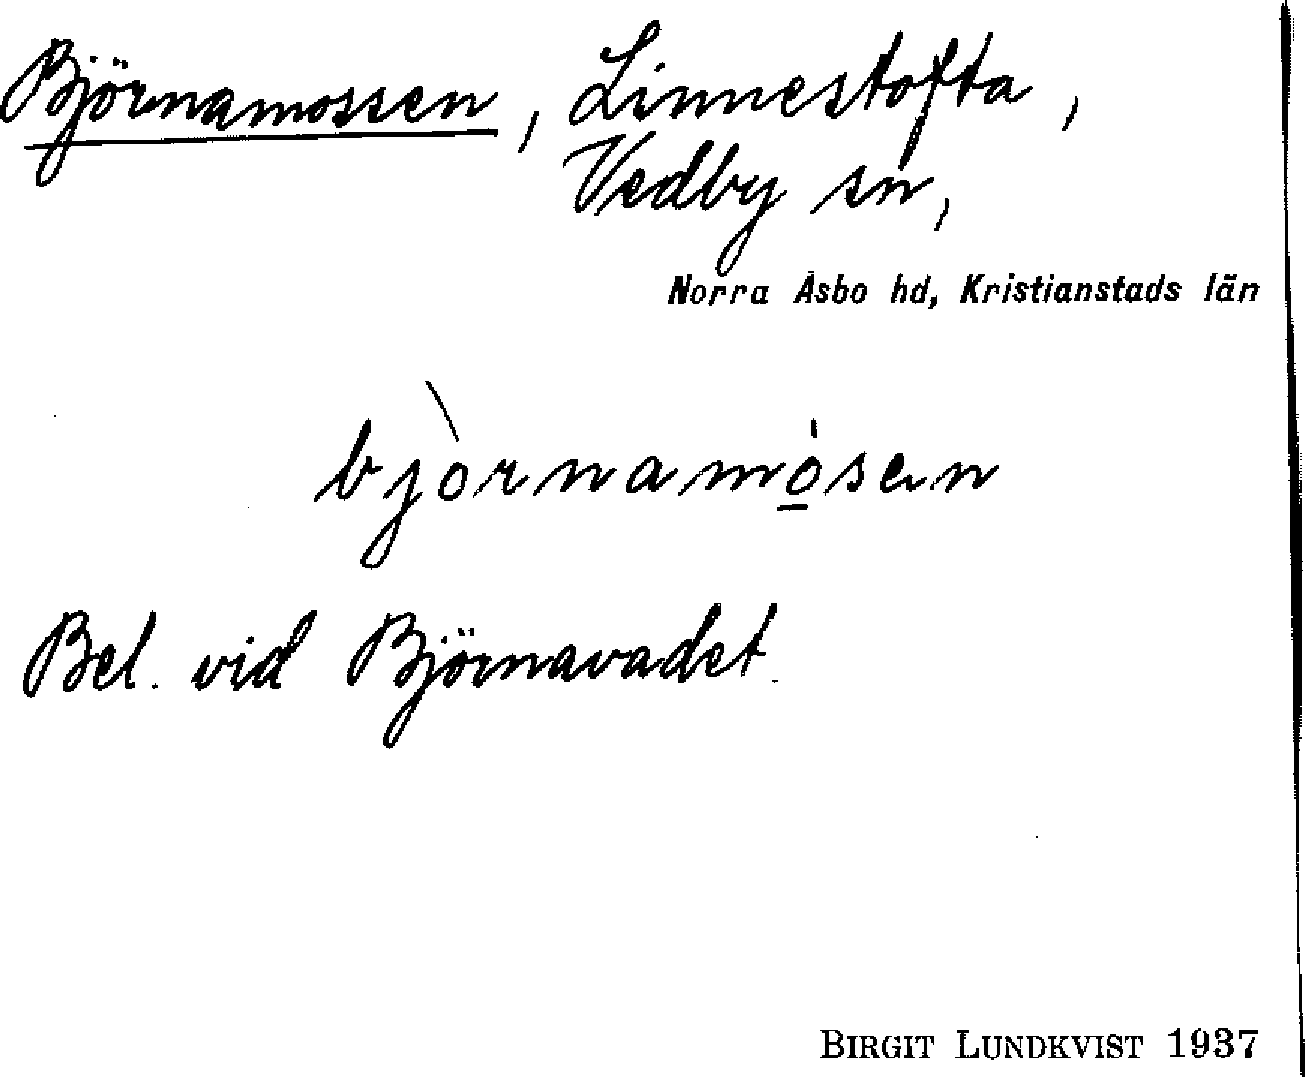 Björnamossen, Linnestofta,
Vedby sn,
Norra Åsbo hd, Kristianstads län
bjòrnamo̱̍sen
Bel. vid Björnavadet.
BIRGIT LUNDKVIST 1937